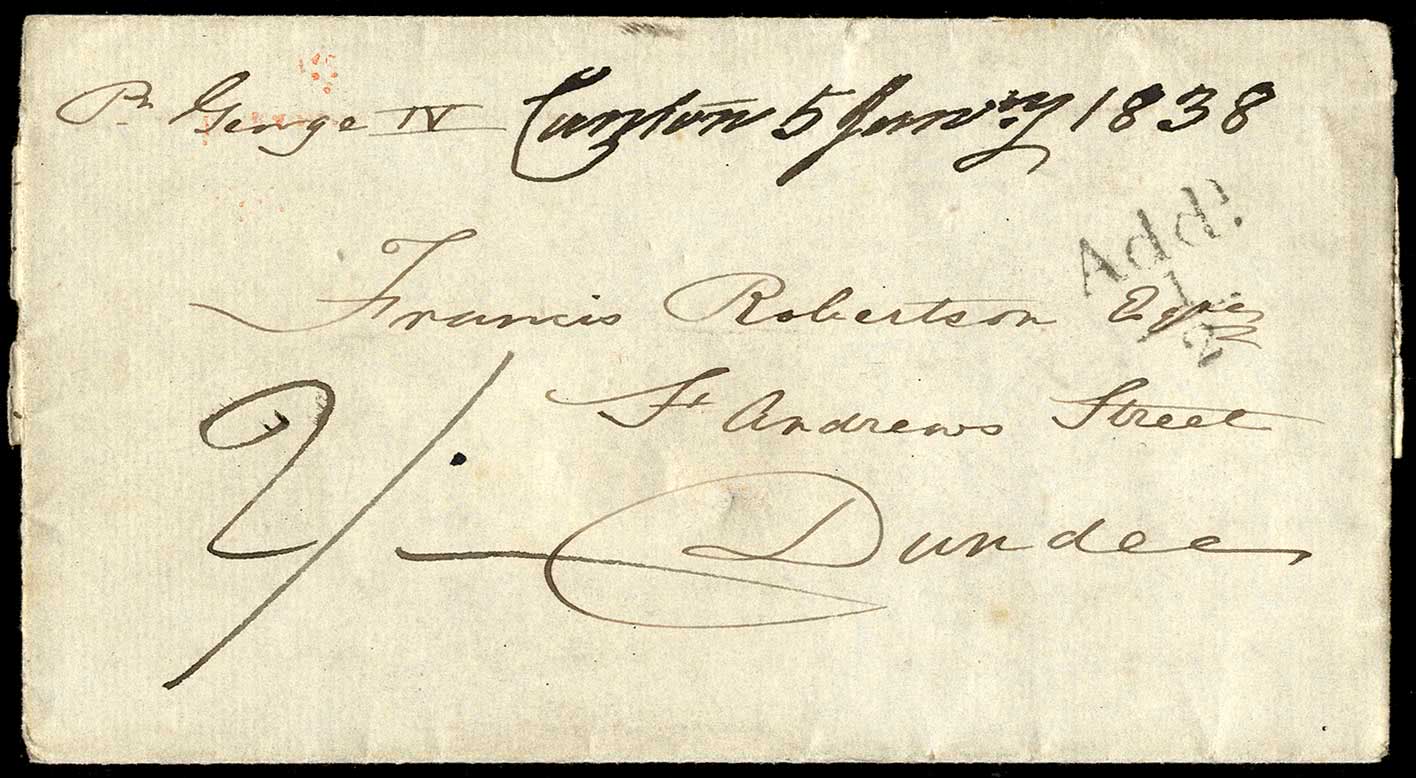 Pr George IV Canton 5 Janry 1838
Addl.
1/2
Francis Robertson Esqre
St Andrews Street
2/.
Dundee